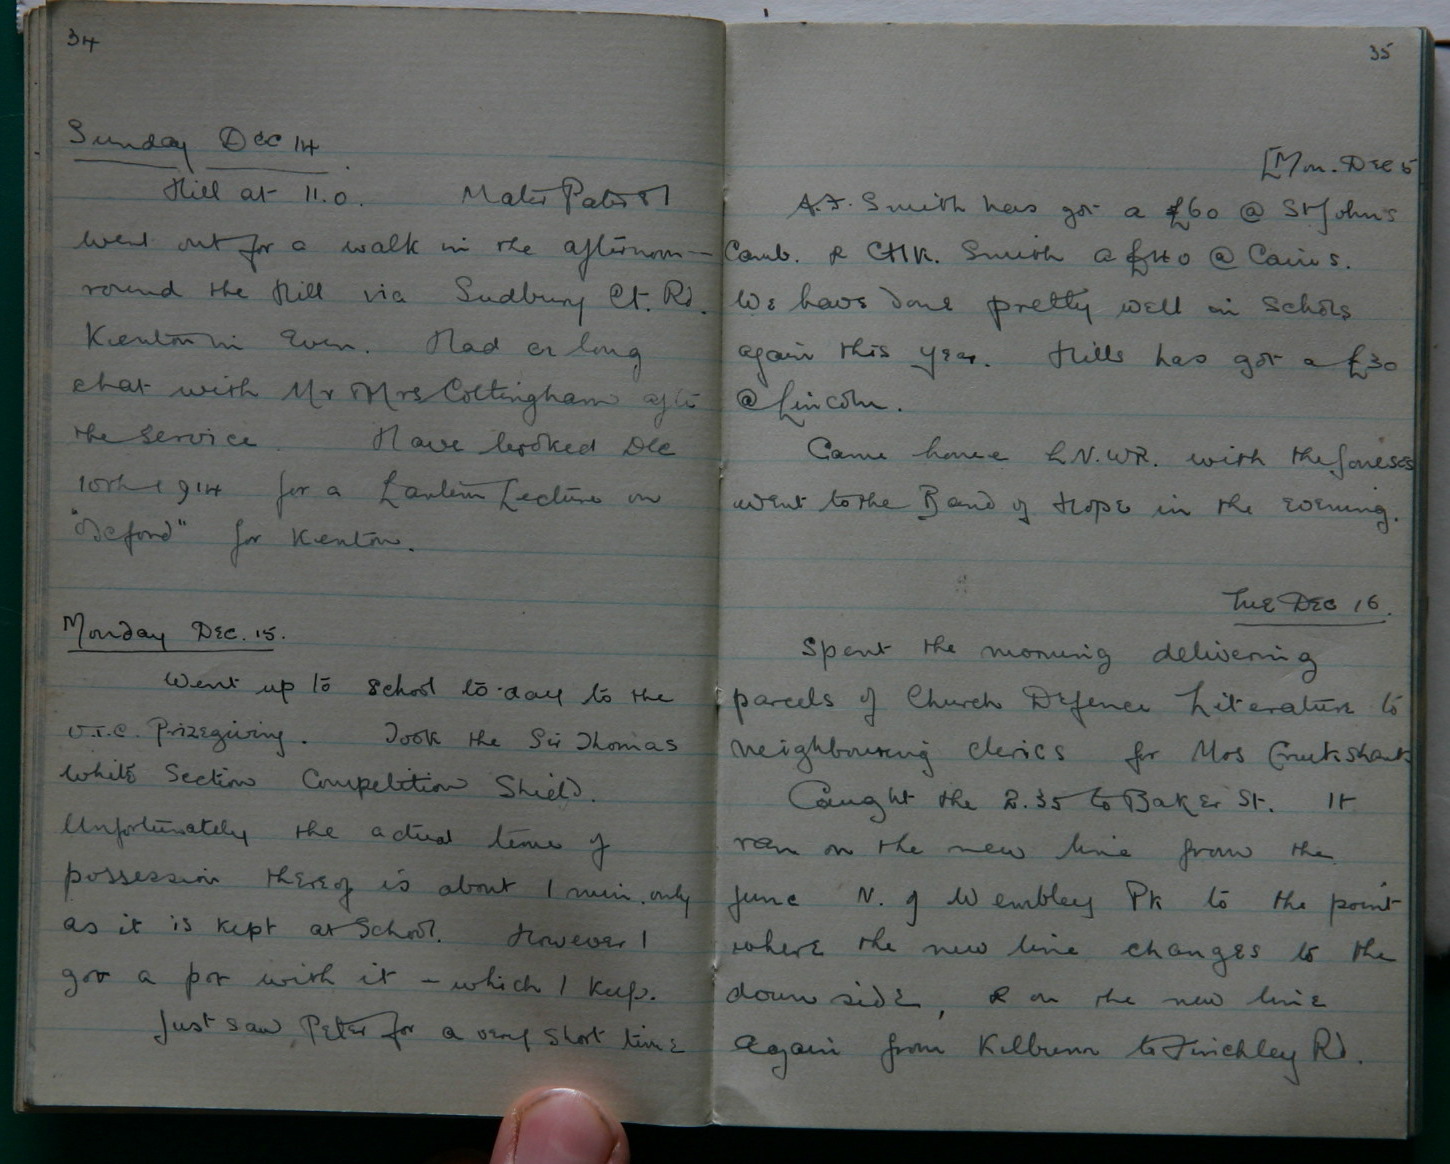 34
Sunday Dec 14
Hill at 11.0. Mater Pater & I
went out for a walk in the afternoon —
round the Hill via Sudbury Ct. Rd.
Kenton in Even. Had a long
chat with Mr & Mrs Cottingham after
the service. Have booked Dec
10th 1914 for a Lantern Lecture on
for Kenton.
Monday Dec. 15.
Went up to school to-day to the
O.T.C. Prizegiving. Took the Sir Thomas
White Section Competition Shield.
Unfortunately the actual time of
possession thereof is about 1 min. only
as it is kept at School. However I
got a pot with it – which I keep.
Just saw Peter for a very short time
35
[Mon. Dec 15
A.F. Smith has got a £60 @ St Johns
Camb. & C.H.K. Smith a £40 @ Caius.
We have done pretty well in schols
again this year. Hills has got a £30
@ Lincoln.
Came home L.N.W.R. with the Joneses
went to the Band of Hope in the evening.
Tue Dec 16.
Spent the morning delivering
parcels of Church Defence Literature to
neighbouring clerics for Mrs Cruikshank
Caught the 2.35 to Baker St. It
ran on the new line from the
junc N. of Wembley Pk to the point
where the new line changes to the
down side, & on the new line
again from Kilburn to Finchley Rd.